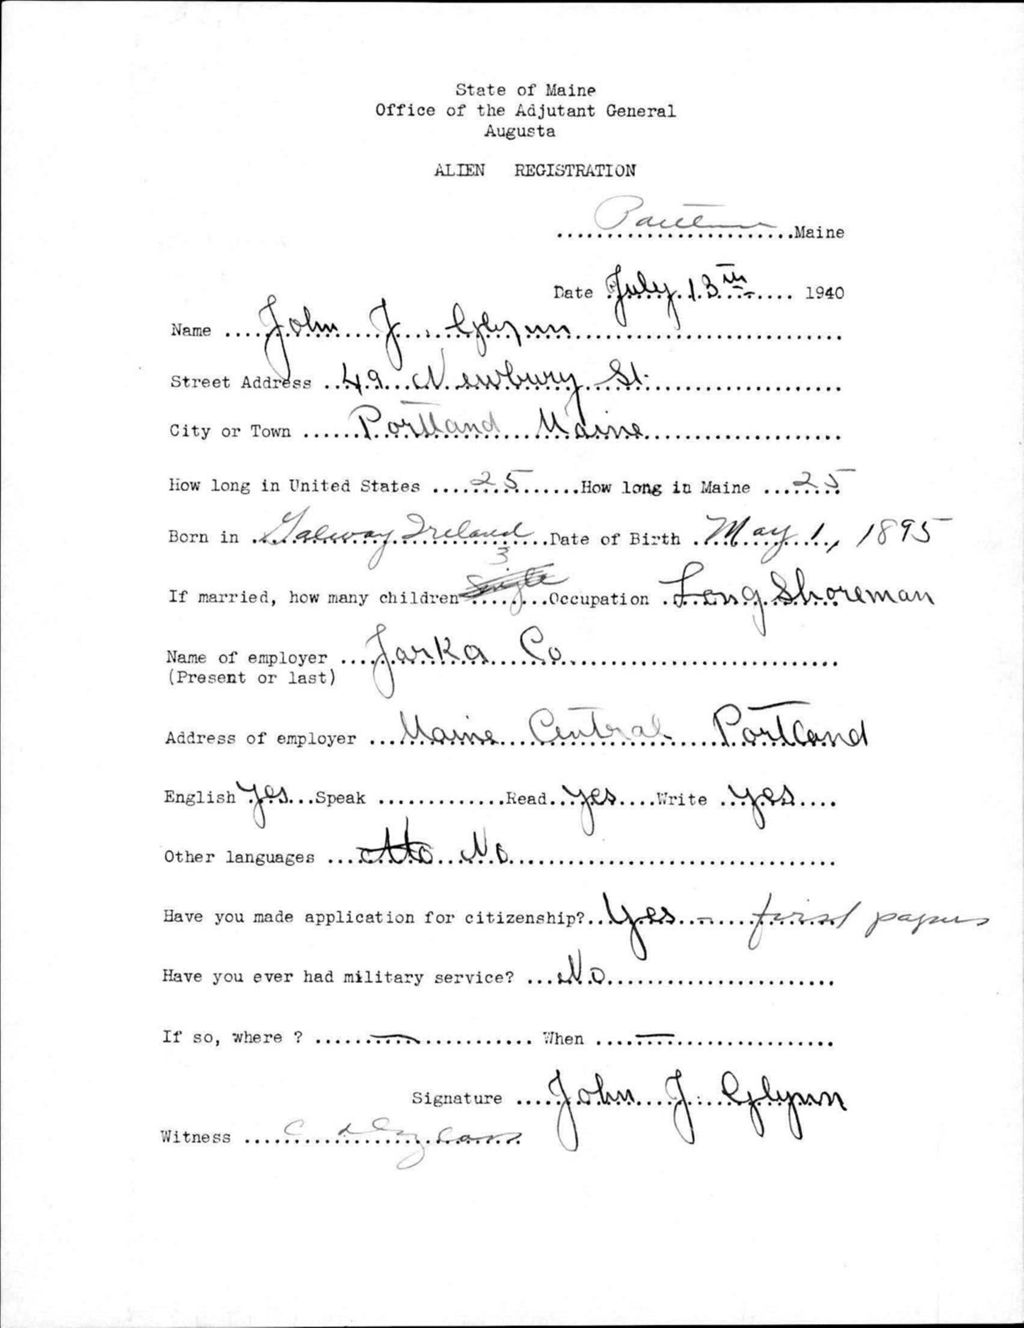 State of Maine
Office of the Adjutant General
Augusta
ALIEN REGISTRATION
........................Maine
Date July 13th 1940
Name John J. Glynn
Street Address 49 Newbury St.
City or Town Portland Maine
How long in United States 25 How long in Maine 25
Born in Galway Ireland Date of Birth May 1, 1895
3
If married, how many children Single Occupation Long Shoreman
Name of employer Jarka Co
(Present or last)
Address of employer Maine Central Portland
English Yes Speak ............. Read Yes Write Yes
Other languages No
Have you made application for citizenship? Yes - first papers
Have you ever had military service? No
If so, where ? — When —
Signature John J. Glynn
Witness